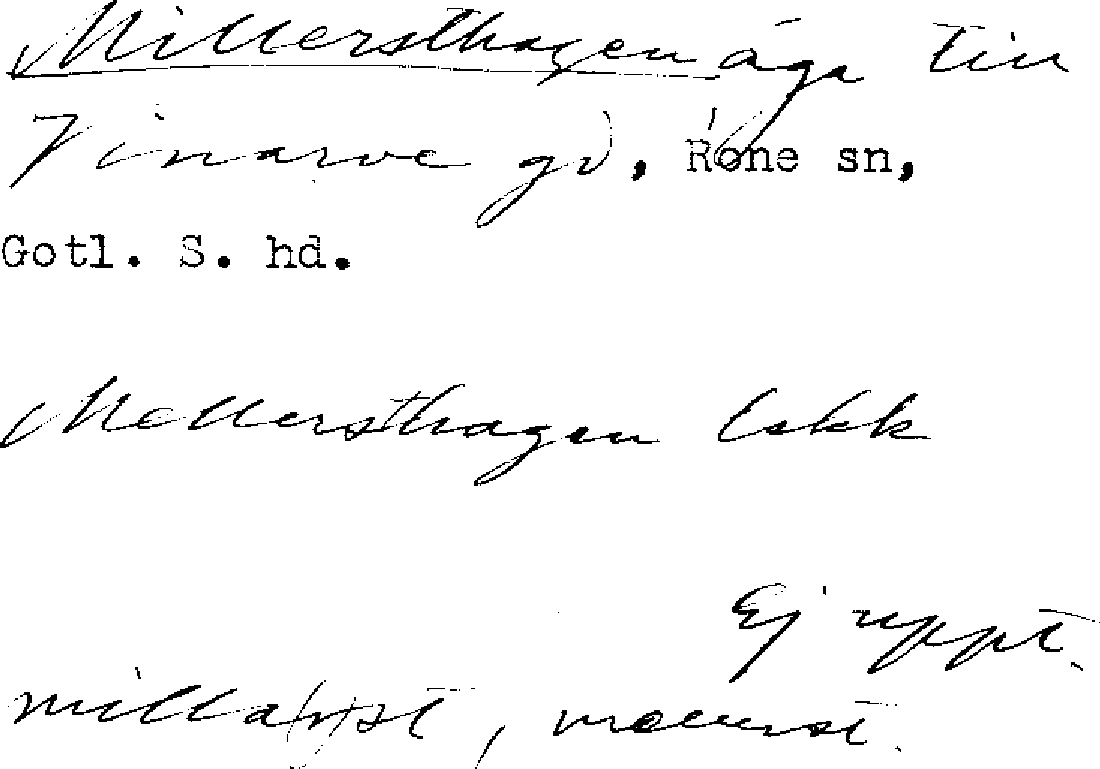 Millersthagen äga till
Vinarve gd, Rone sn,
Gotl. S. hd.
Mellersthagen Lskk
Ej uppt.
milla(r)st, mellerst.